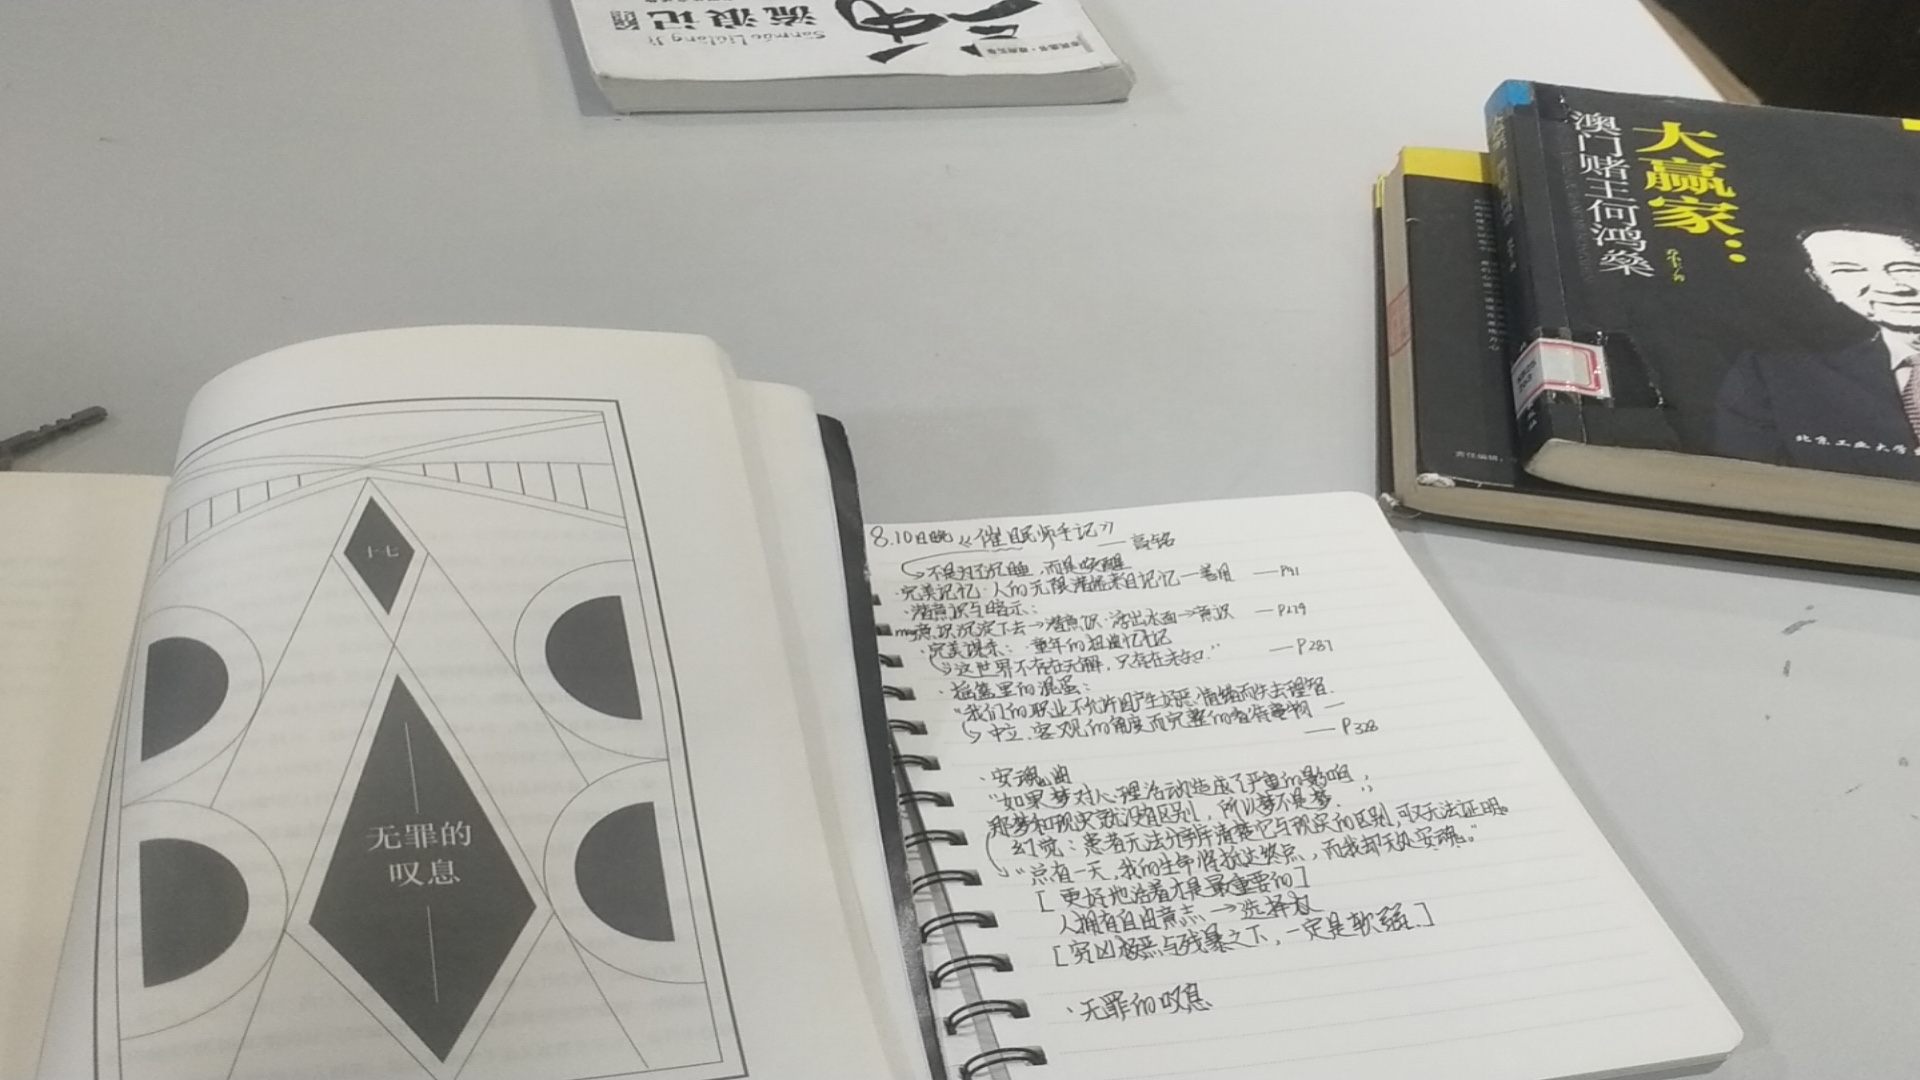 三毛
流浪记
Sanmao Liulang Ji
大赢家：
澳门赌王何鸿燊
北京工业大学
责任编辑：
十七
无罪的
叹息
8.10日晚《催眠师手记》
——高铭
不是为了沉睡，而是唤醒
·完美记忆·人的无限潜能来自记忆—善用 —P91
·潜意识与暗示：
意识沉淀下去→潜意识·浮出水面→意识 —P179
·完美谋杀：·童年的扭曲忆记
"这世界不存在无解，只存在未知." —P287
·摇篮里的混蛋：
"我们的职业不允许因产生好恶情绪而失去理智.
中立、客观的角度而完整的看待事物 —
—P328
·安魂曲
"如果梦对心理活动造成了严重的影响
那梦和现实就没有区别，所以梦不是梦.
幻觉：患者无法分辨清楚它与现实的区别,可又无法证明。
"总有一天，我的生命将抵达终点，而我却无处安魂。"
[更好地活着才是最重要的]
人拥有自由意志→选择权
[穷凶极恶与残暴之下，一定是软弱.]
·无罪的叹息